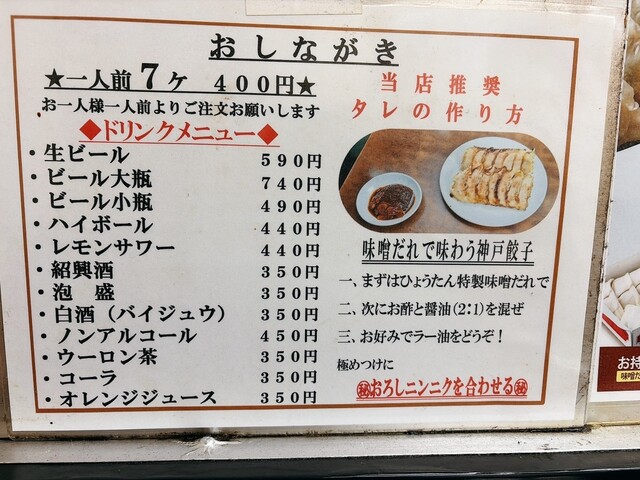 おしながき
★一人前７ケ ４００円★
お一人様一人前よりご注文お願いします
◆ドリンクメニュー◆
・生ビール ５９０円
・ビール大瓶 ７４０円
・ビール小瓶 ４９０円
・ハイボール ４４０円
・レモンサワー ４４０円
・紹興酒 ３５０円
・泡 盛 ３５０円
・白酒（バイジュウ） ３５０円
・ノンアルコール ４５０円
・ウーロン茶 ３５０円
・コーラ ３５０円
・オレンジジュース ３５０円
当店推奨
タレの作り方
味噌だれで味わう神戸餃子
一、まずはひょうたん特製味噌だれで
二、次にお酢と醤油(2:1)を混ぜ
三、お好みでラー油をどうぞ！
極めつけに
㊙おろしニンニクを合わせる㊙
お持
味噌だ